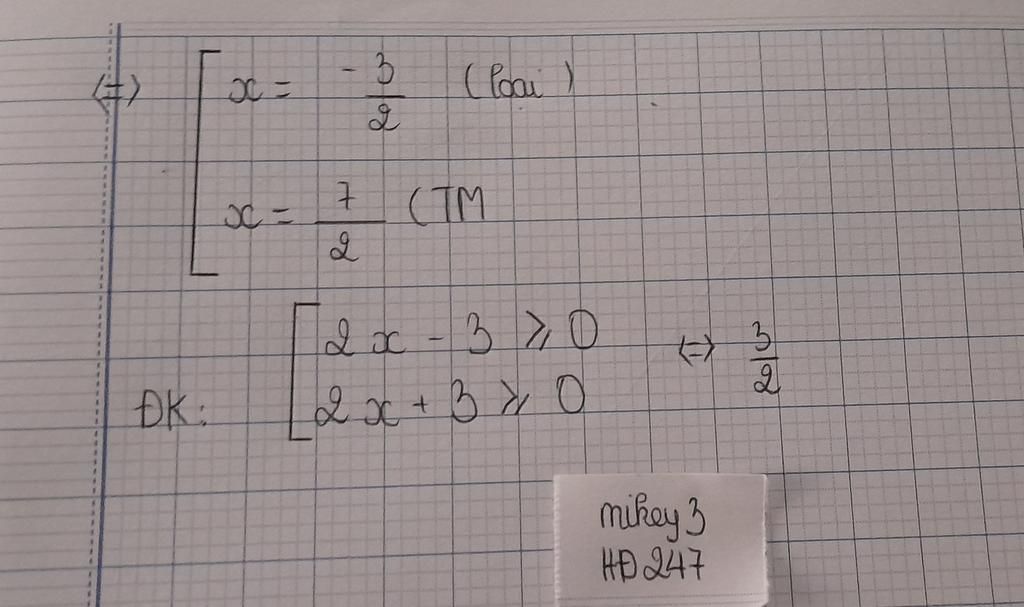 ⇔ [ x = -3/2 (loại)
x = 7/2 (TM
ĐK: [ 2x - 3 ⩾ 0 ⇔ 3/2
2x + 3 ⩾ 0
mikey3
HĐ247